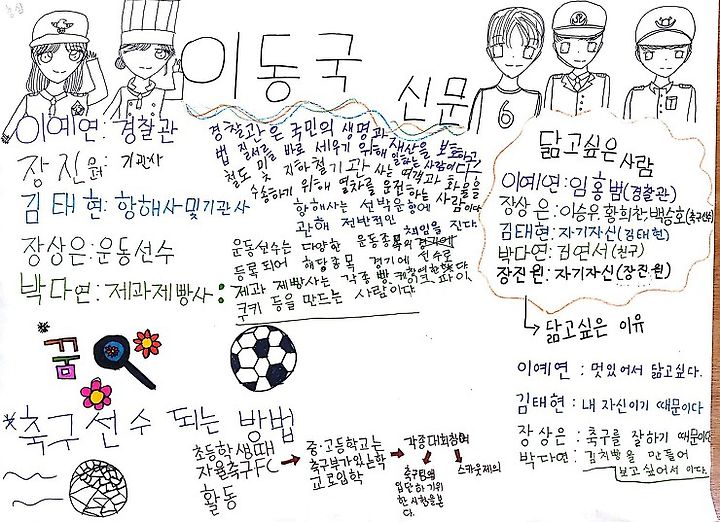 이동국
신문
6
이예연: 경찰관
장진원: 기관사
김태현: 항해사및기관사
장상은: 운동선수
박다연: 제과제빵사:
경찰관은 국민의 생명과
재산을 보호하고
법 질서를 바로 세우기 위해 일하는 사람이다.
철도 및 지하철기관사는 여객과 화물을
수송하기 위해 열차를 운전하는 사람이다
항해사는 선박운항에
관해 전반적인 책임을 진다.
운동선수는 다양한 운동종목의 경기에
등록되어 해당종목 경기에 선수로
제과 제빵사는 각종 빵, 케이크, 파이,
쿠키 등을 만드는 사람이다
닮고싶은 사람
이예연: 임홍범(경찰관)
장상은: 이승우,황희찬,백승호(축구선수)
김태현: 자기자신(김태현)
박다연: 김연서(친구)
장진원: 자기자신(장진원)
닮고싶은 이유
이예연: 멋있어서 닮고싶다.
김태현: 내 자신이기 때문이다
장상은: 축구를 잘하기 때문이다
박다연: 김치빵을 만들어
보고싶어서 이다.
꿈
*축구선수 되는 방법
초등학생때
자율축구FC
활동
중·고등학교는
축구부가있는학
교로입학
각종대회참여
축구팀에
입단하기위
한시험을본
다.
스카웃제의